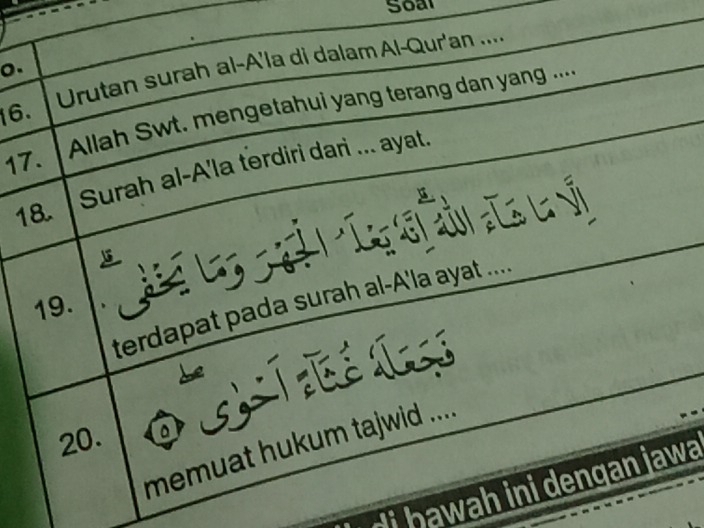 Soal
o.
16. Urutan surah al-A'la di dalam Al-Qur'an ....
17. Allah Swt. mengetahui yang terang dan yang ....
18. Surah al-A'la terdiri dari ... ayat.
19. اِلَّا مَا شَاۤءَ اللّٰهُ ۗاِنَّهٗ يَعْلَمُ الْجَهْرَ وَمَا يَخْفٰىۗ
terdapat pada surah al-A'la ayat ....
20. فَجَعَلَهٗ غُثَاۤءً اَحْوٰىۖ ٥
memuat hukum tajwid ....
di bawah ini dengan jawa